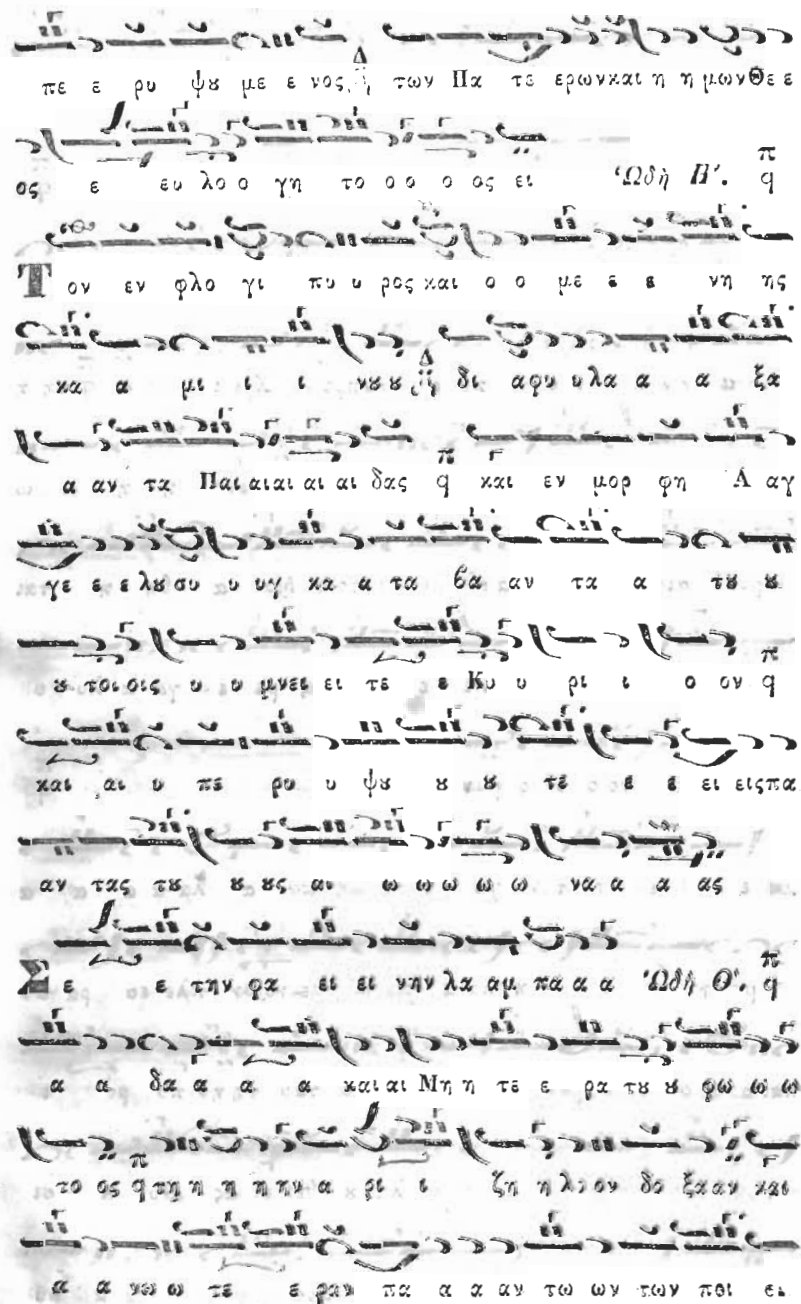 πε ε ρυ ψȣ με ε νος Δ των Πα τε ερων και η η μων Θε ε
ος ε ευ λο ο γη το ο ο ο ος ει Ὠδὴ Η΄. π q
Τον εν φλο γι πυ υ ρος και ο ο με ε ε νη ης
κα α μι ι ι νȣ ȣ Δ δι αφυ υλα α α α ξα
α αν τα Παι αι αι αι αι δας π q και εν μορ φη Α αγ
γε ε ε λȣ συ υ υγ κα α τα βα αν τα α τȣ ȣ
ȣ τοι οις υ υ μνει ει τε ε Κυ υ ρι ι ο ον π q
και αι υ πε ρυ υ ψȣ ȣ ȣ τε ε ε ει εις πα
αν τας τȣ ȣ ȣς αι ω ω ω ω ω να α α ας
Σε ε την φα ει ει νην λα αμ πα α α Ὠδὴ Θ΄. π q
α α δα α α α και αι Μη η τε ε ρα τȣ ȣ φω ω ω
το ος π q τη η η η ην α ρι ι ζη η λον ον δο ξα αν και
α α νω ω τε ε ραν πα α α αν τω ων των ποι ει